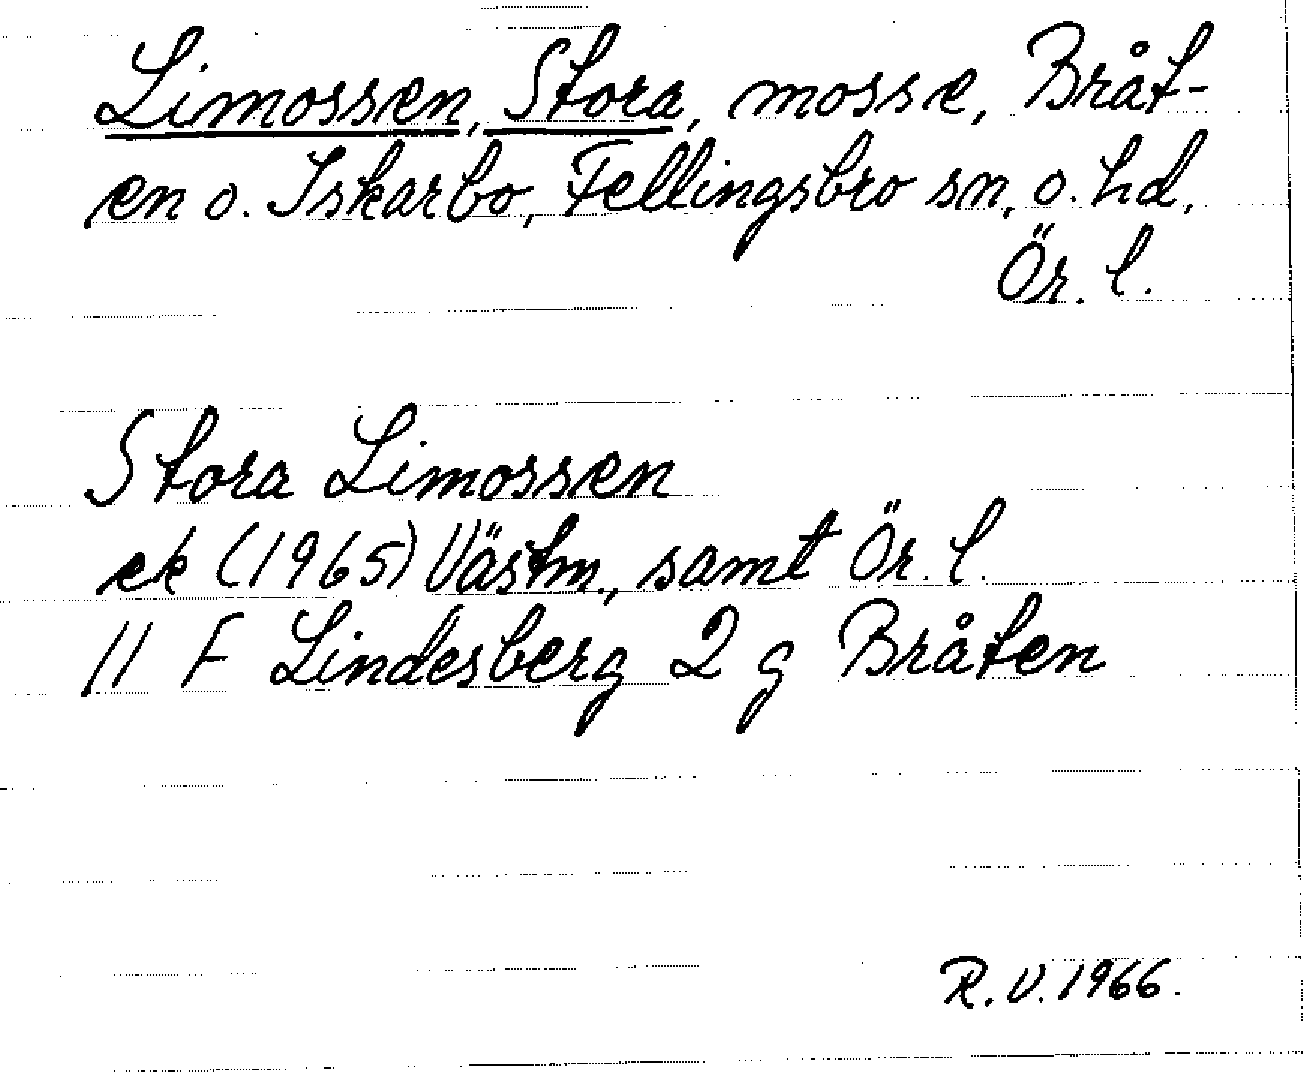 Limossen, Stora, mosse, Bråt-
en o. Iskarbo, Fellingsbro sn. o. hd.
Ör. l.
Stora Limossen
ek (1965) Västm., samt Ör. l.
11 F Lindesberg 2 g Bråten
R. V. 1966.